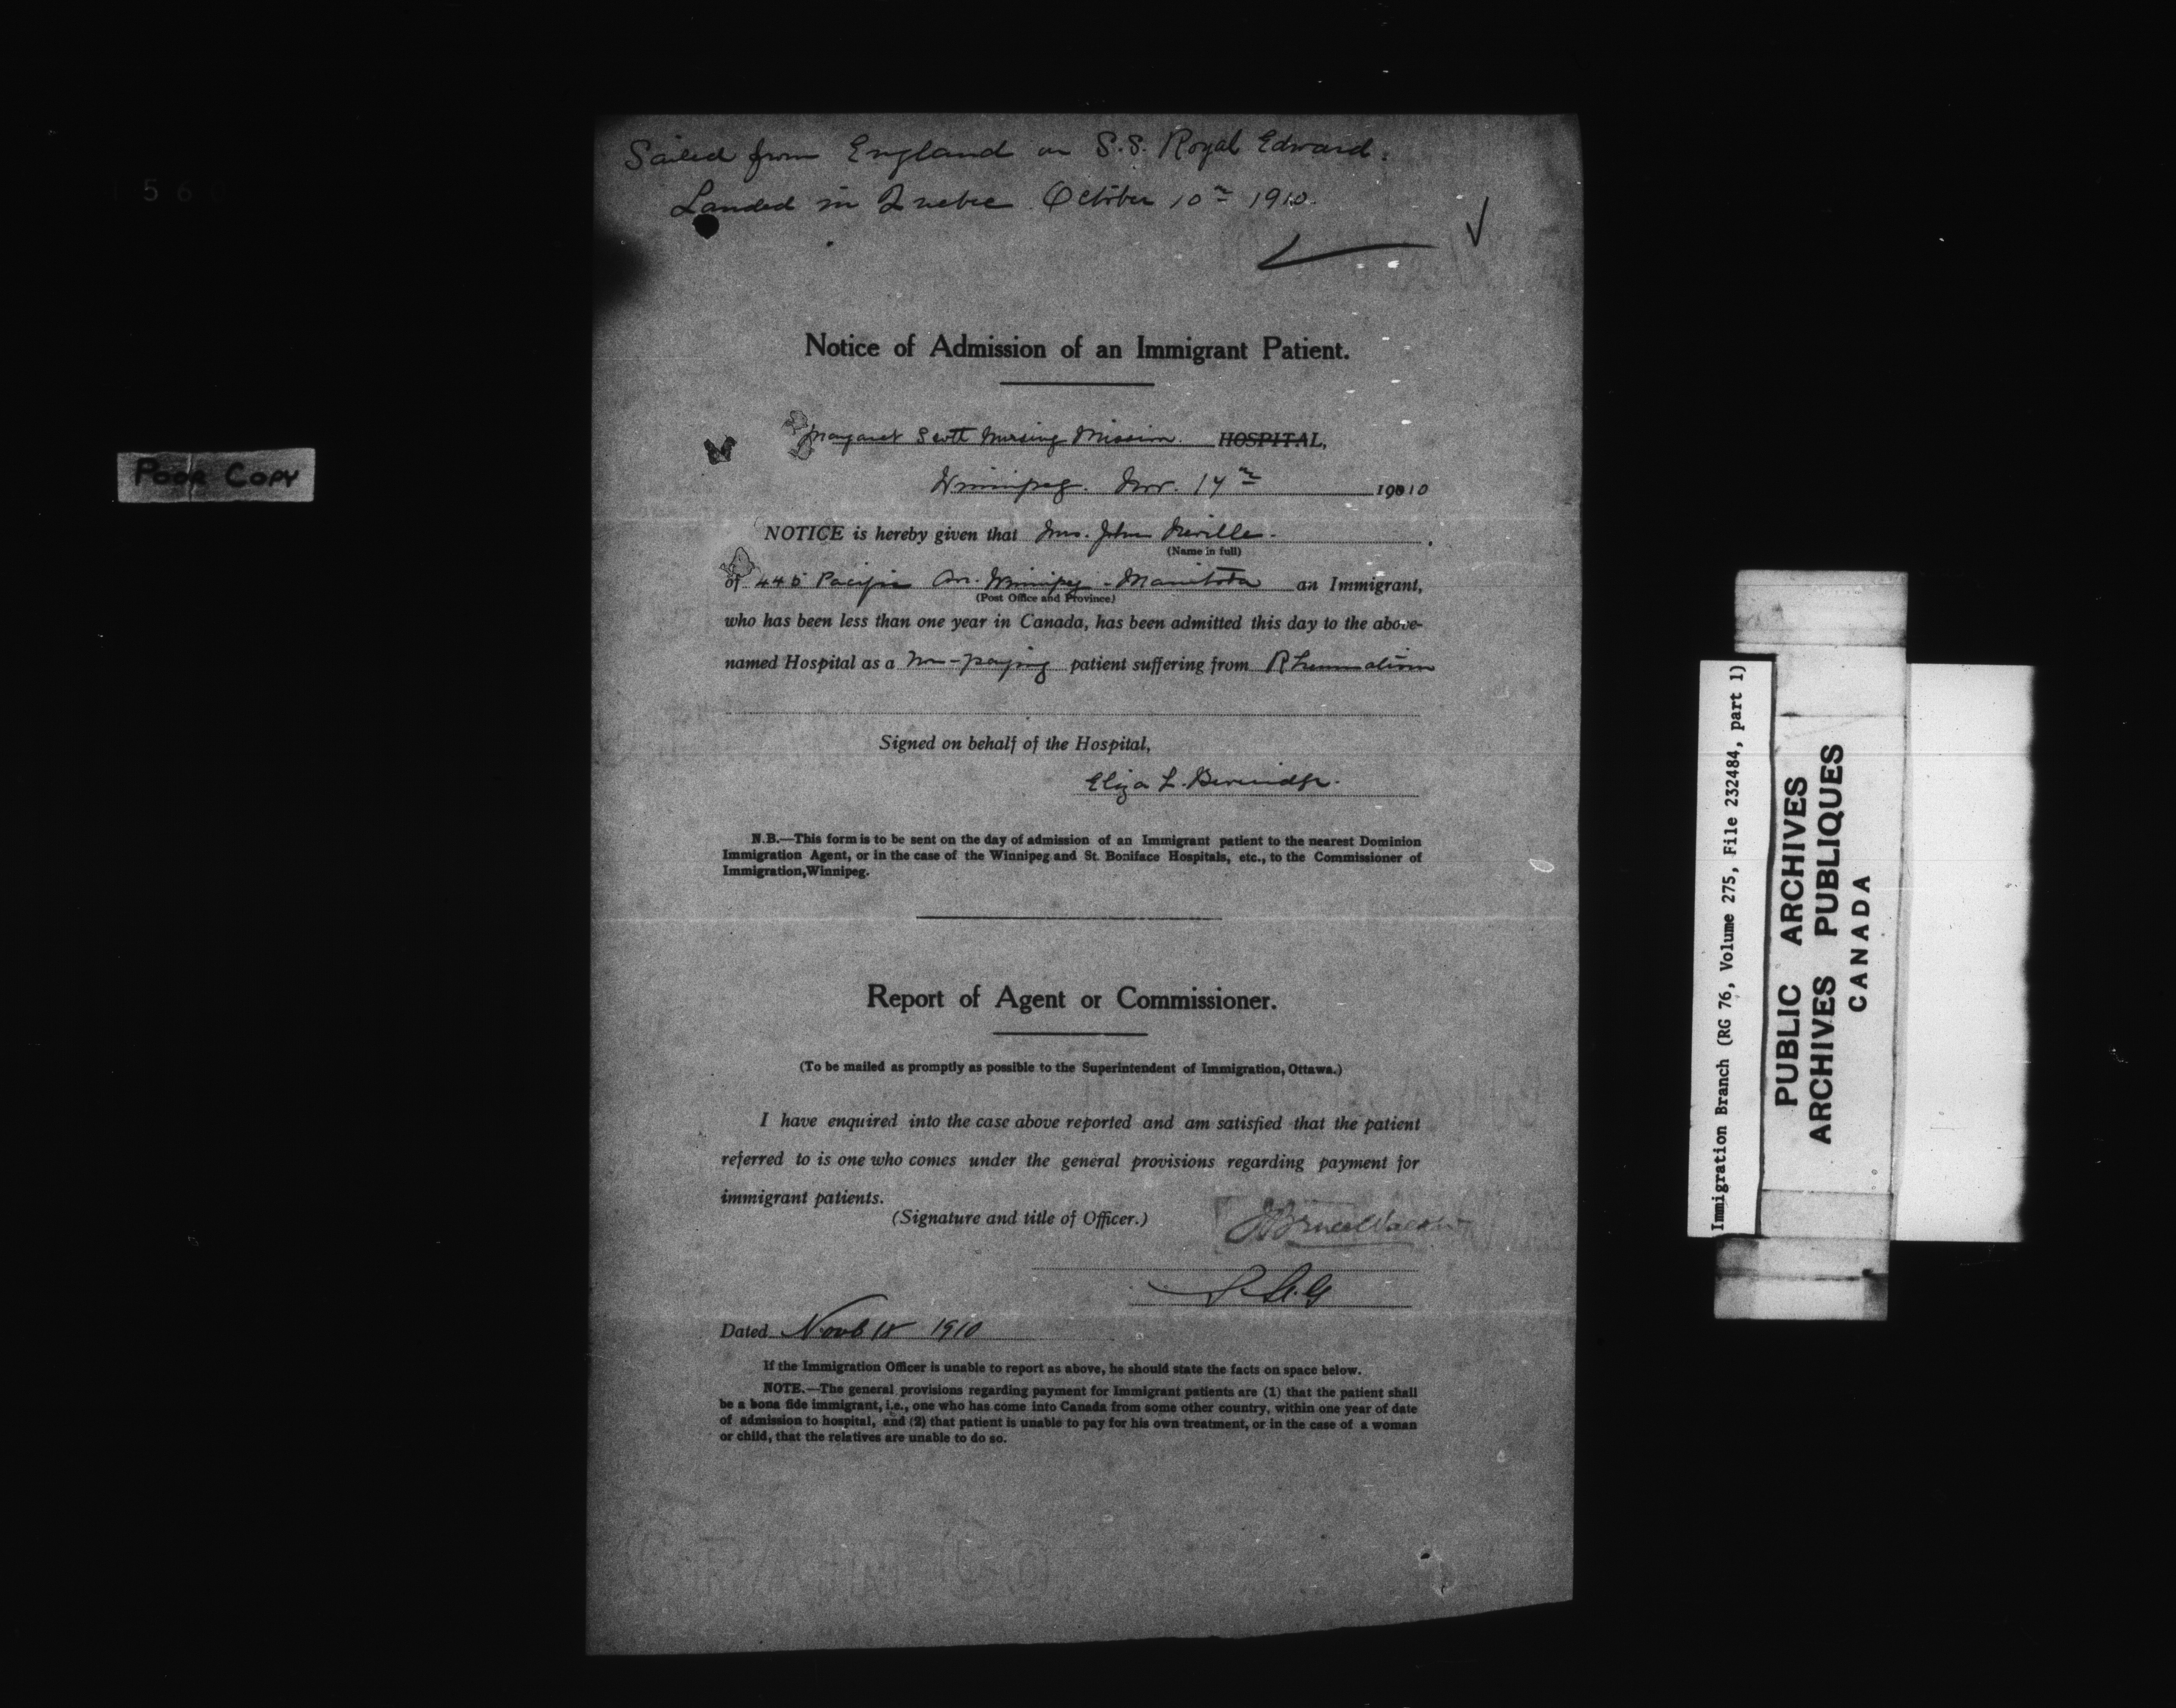 Sailed from England on S.S. Royal Edward.
Landed in Quebec October 10th 1910.
Notice of Admission of an Immigrant Patient.
Margaret Scott Nursing Mission. HOSPITAL,
Winnipeg. Nov. 17th 1910
NOTICE is hereby given that Mrs. John Neville.
(Name in full)
of 445 Pacific Av. Winnipeg - Manitoba an Immigrant,
(Post Office and Province)
who has been less than one year in Canada, has been admitted this day to the above-
named Hospital as a non-paying patient suffering from Rheumatism
Signed on behalf of the Hospital,
Eliza L. Beveridge.
N.B.—This form is to be sent on the day of admission of an Immigrant patient to the nearest Dominion
Immigration Agent, or in the case of the Winnipeg and St. Boniface Hospitals, etc., to the Commissioner of
Immigration, Winnipeg.
Report of Agent or Commissioner.
(To be mailed as promptly as possible to the Superintendent of Immigration, Ottawa.)
I have enquired into the case above reported and am satisfied that the patient
referred to is one who comes under the general provisions regarding payment for
immigrant patients.
(Signature and title of Officer.)
J Bruce Walker
Dated Novb 18 1910
If the Immigration Officer is unable to report as above, he should state the facts on space below.
NOTE.—The general provisions regarding payment for Immigrant patients are (1) that the patient shall
be a bona fide immigrant, i.e., one who has come into Canada from some other country, within one year of date
of admission to hospital, and (2) that patient is unable to pay for his own treatment, or in the case of a woman
or child, that the relatives are unable to do so.
POOR COPY
Immigration Branch (RG 76, Volume 275, File 232484, part 1)
PUBLIC ARCHIVES
ARCHIVES PUBLIQUES
CANADA